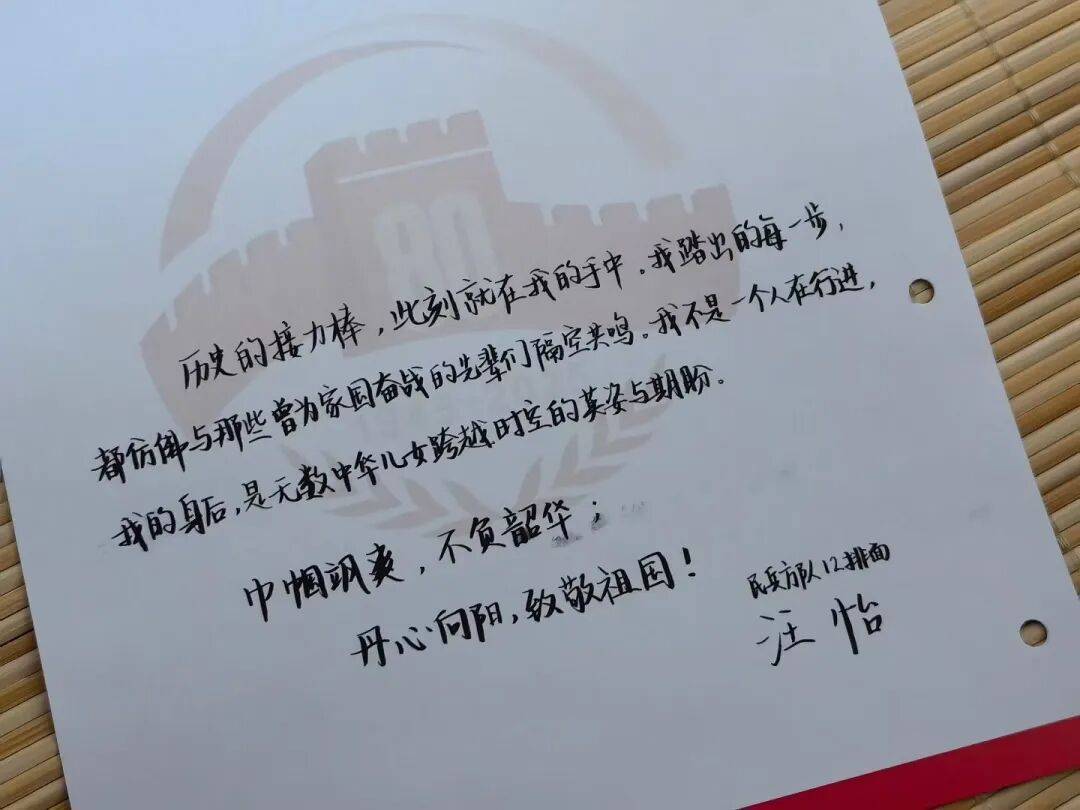 80
历史的接力棒，此刻就在我的手中。我踏出的每一步，
都仿佛与那些曾为家国奋战的先辈们隔空共鸣。我不是一个人在行进，
我的身后，是无数中华儿女跨越时空的英姿与期盼。
巾帼飒爽，不负韶华；
丹心向阳，致敬祖国！
民兵方队12排面
汪怡